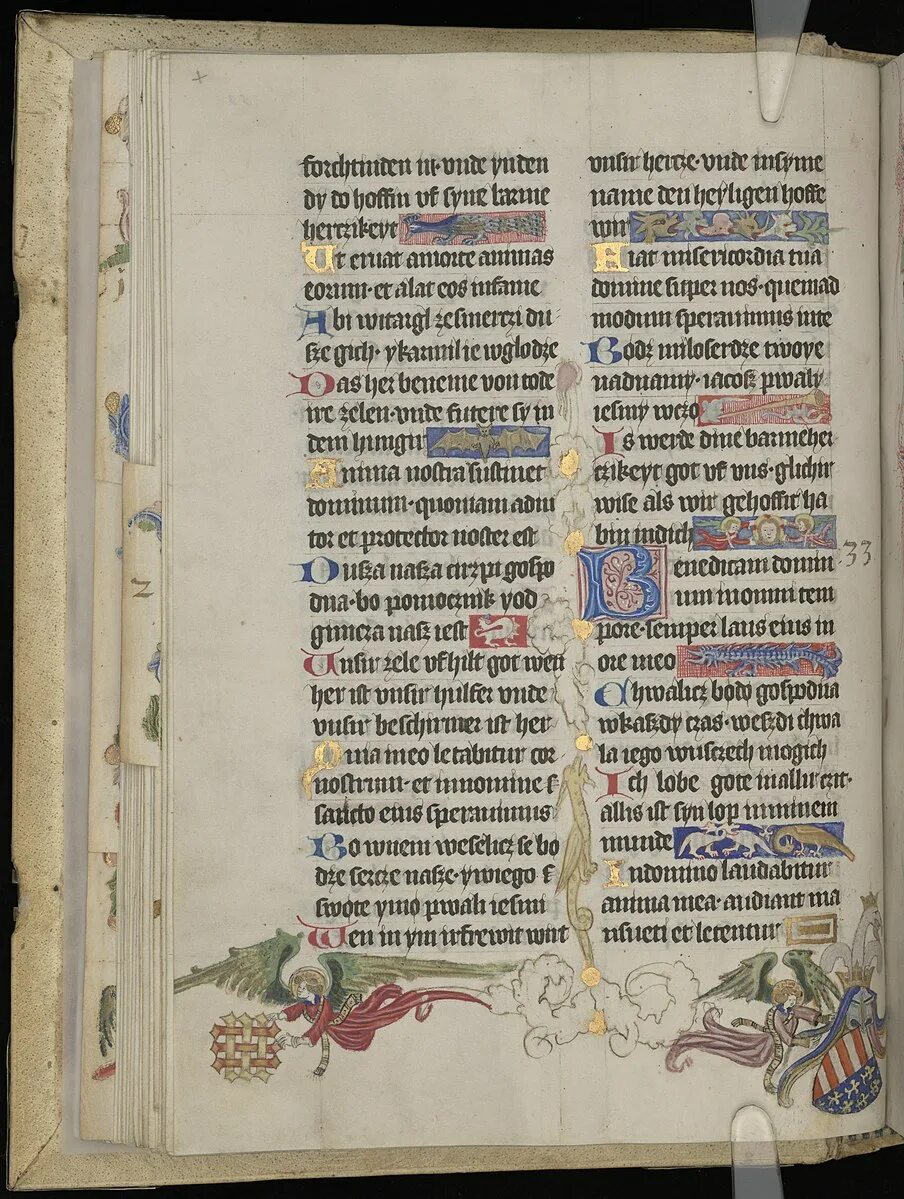 forchtinden in· vnde ynden
dy do hoffin vf syne barme
herczikeyt
Ut eruat a morte animas
eorum· et alat eos in fame
Abi witargl ze smerczi du
sze gich· y karmil ie w glodze
Das her beneme von tode
ire zelen· vnde futere sy in
dem hungir
Anima nostra sustinet
dominum· quoniam adiu
tor et protector noster est
Dusza nasza cirzpi gospo
dna· bo pomocznik y od
gimcza nasz iest
Unsir zele vfhilt got wen
her ist vnsir hulfer vnde
vnsir beschirmer ist her
Quia in eo letabitur cor
nostrum· et in nomine s
sancto eius sperauimus
Bo w niem weselicz se bo
dze sercze nasze· y w iego s
swote ymo pwali iesmi
Wen in ym irfrewit wirt
vnsir hercze· vnde in syme
name den heyligen hoffe
wir
Fiat misericordia tua
domine super nos· quemad
modum sperauimus in te
Bodz miloserdze twoye
nad nami· iacosz pwaly
iesmy w czo
Is werde dine barmeher
czikeyt got vf vns· glichir
wise als wir gehoffit ha
bin in dich
33
Benedicam domin
um in omni tem
pore· semper laus eius in
ore meo
Chwalicz bodo gospodna
w kaszdy czas· weszdi chwa
la iego w uszczech mogich
Ich lobe gote in allir czit·
allis ist syn lop in minem
munde
In domino laudabitur
anima mea· audiant ma
nsueti et letentur